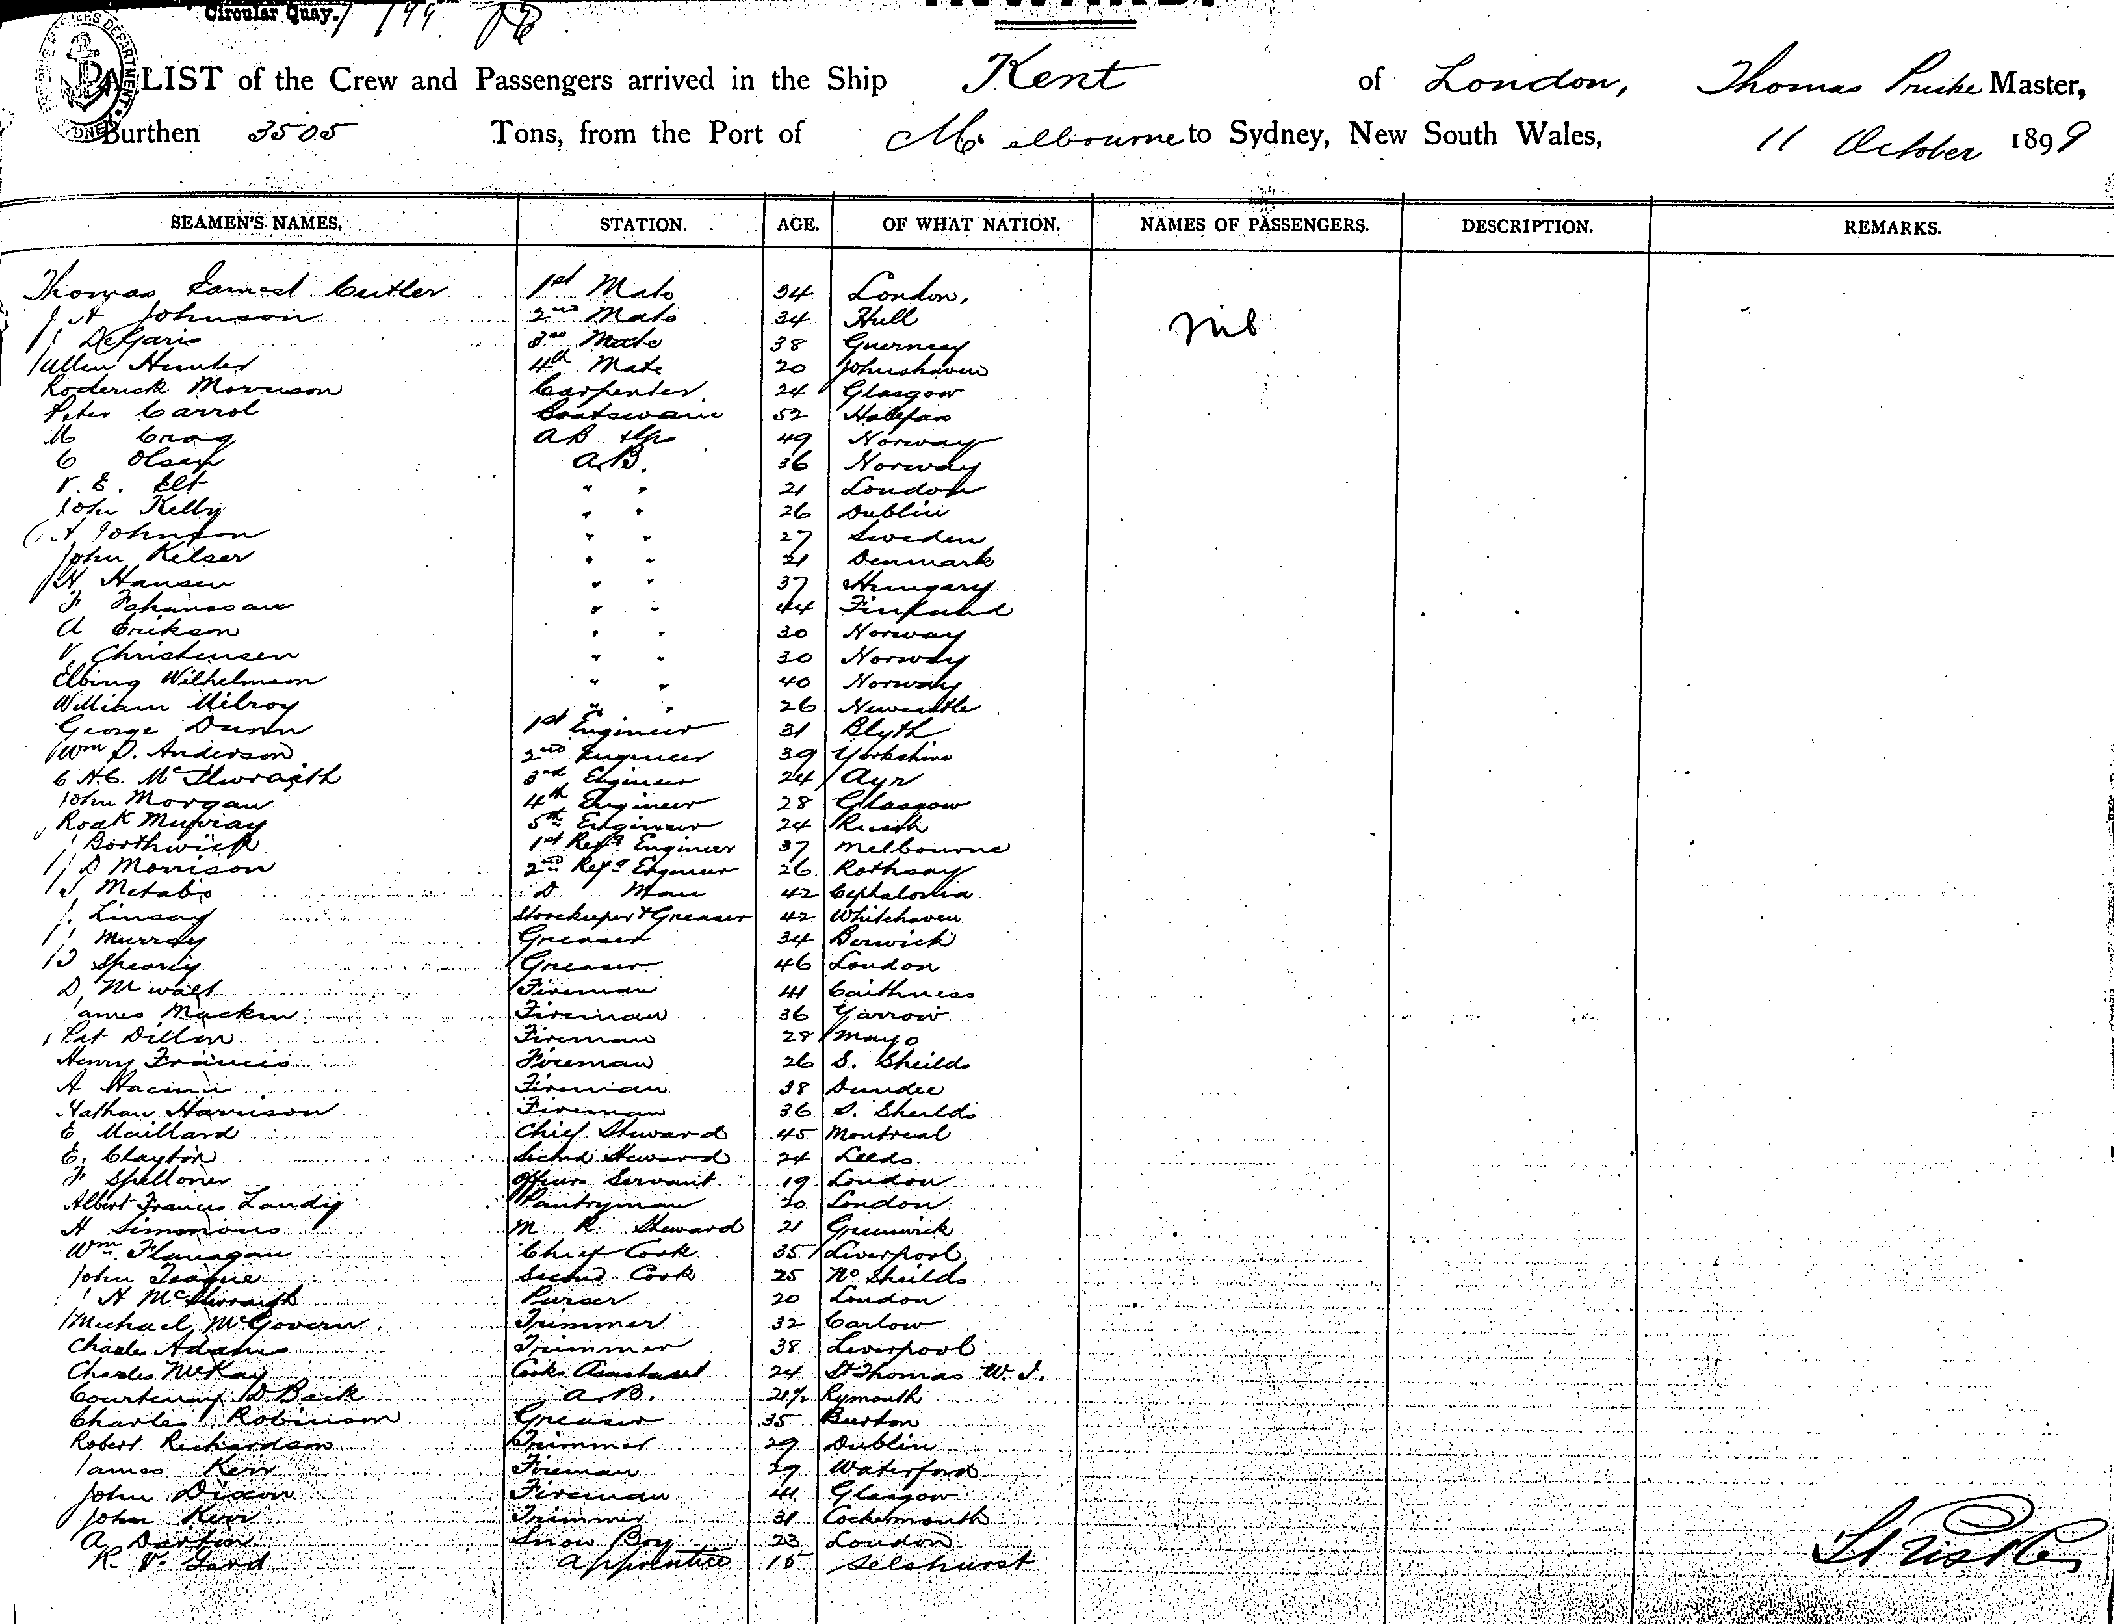 Circular Quay. 199
INWARD.
A LIST of the Crew and Passengers arrived in the Ship Kent of London, Thomas Master,
Burthen 3505 Tons, from the Port of Melbourne to Sydney, New South Wales, 11 October 1899
SEAMEN'S NAMES. STATION. AGE. OF WHAT NATION. NAMES OF PASSENGERS. DESCRIPTION. REMARKS.
Thomas Cutler 1st Mate 34 London,
J A Johnson 2nd Mate 34 Hull Nil
J DeGaris 3rd Mate 38 Guernsey
Allen Hunter 4th Mate 20 Johnshaven
Roderick Morrison Carpenter 24 Glasgow
Peter Carrol Boatswain 52 Halifax
M Craig AB 49 Norway
C Olsen A.B. 36 Norway
V. E. Elt " " 21 London
John Kelly " " 26 Dublin
A Johnson " " 27 Sweden
John Kelser " " 21 Denmark
H Hansen " " 37 Hungary
F " " 44 Finland
A Erikson " " 30 Norway
V Christensen " " 30 Norway
Elbing Wilhelmson " " 40 Norway
William Milroy " " 26 Newcastle
George Dunn 1st Engineer 31 Blyth
Wm D. Anderson 2nd Engineer 39 Yorkshire
C. H. C. McIlwraith 3rd Engineer 24 Ayr
John Morgan 4th Engineer 28 Glasgow
Murray 5th Engineer 24
J Borthwick 1st Refg Engineer 37 Melbourne
J D Morrison 2nd Refg Engineer 26 Rothsay
J Metabo D Man 42 Cephalonia
J. Linsay Storekeeper & Greaser 42 Whitehaven
J Murray Greaser 34 Berwick
J Greaser 46 London
D, Fireman 41 Caithness
James Mackin Fireman 36 Yarrow
Pat Dillon Fireman 28 Mayo
Henry Francis Fireman 26 S. Sheilds
A Fireman 38 Dundee
Nathan Harrison Fireman 36 S. Sheilds
E Maillard Chief Steward 45 Montreal
E. Clayton Second Steward 24 Leeds
F Officers Servant 19 London
Albert Francis Landy Pantryman 20 London
H Simmons M R Steward 21 Greenwich
Wm Flanagan Chief Cook 35 Liverpool
John Teague Second Cook 25 No Sheilds
A McIlwraith Purser 20 London
Michael McGovern Trimmer 32 Carlow
Charles Adams Trimmer 38 Liverpool
Charles McKay Cooks Assistant 24 St Thomas W. I.
Courtenay D Back A.B. 21½
Charles Robinson Greaser 35 Burton
Robert Richardson Trimmer 29 Dublin
James Kerr Fireman 29 Waterford
John Dixon Fireman 41 Glasgow
John Kerr Trimmer 31 Cockermouth
A Darbin Snow Boy 23 London
R V. Gard Apprentice 15 Selshurst